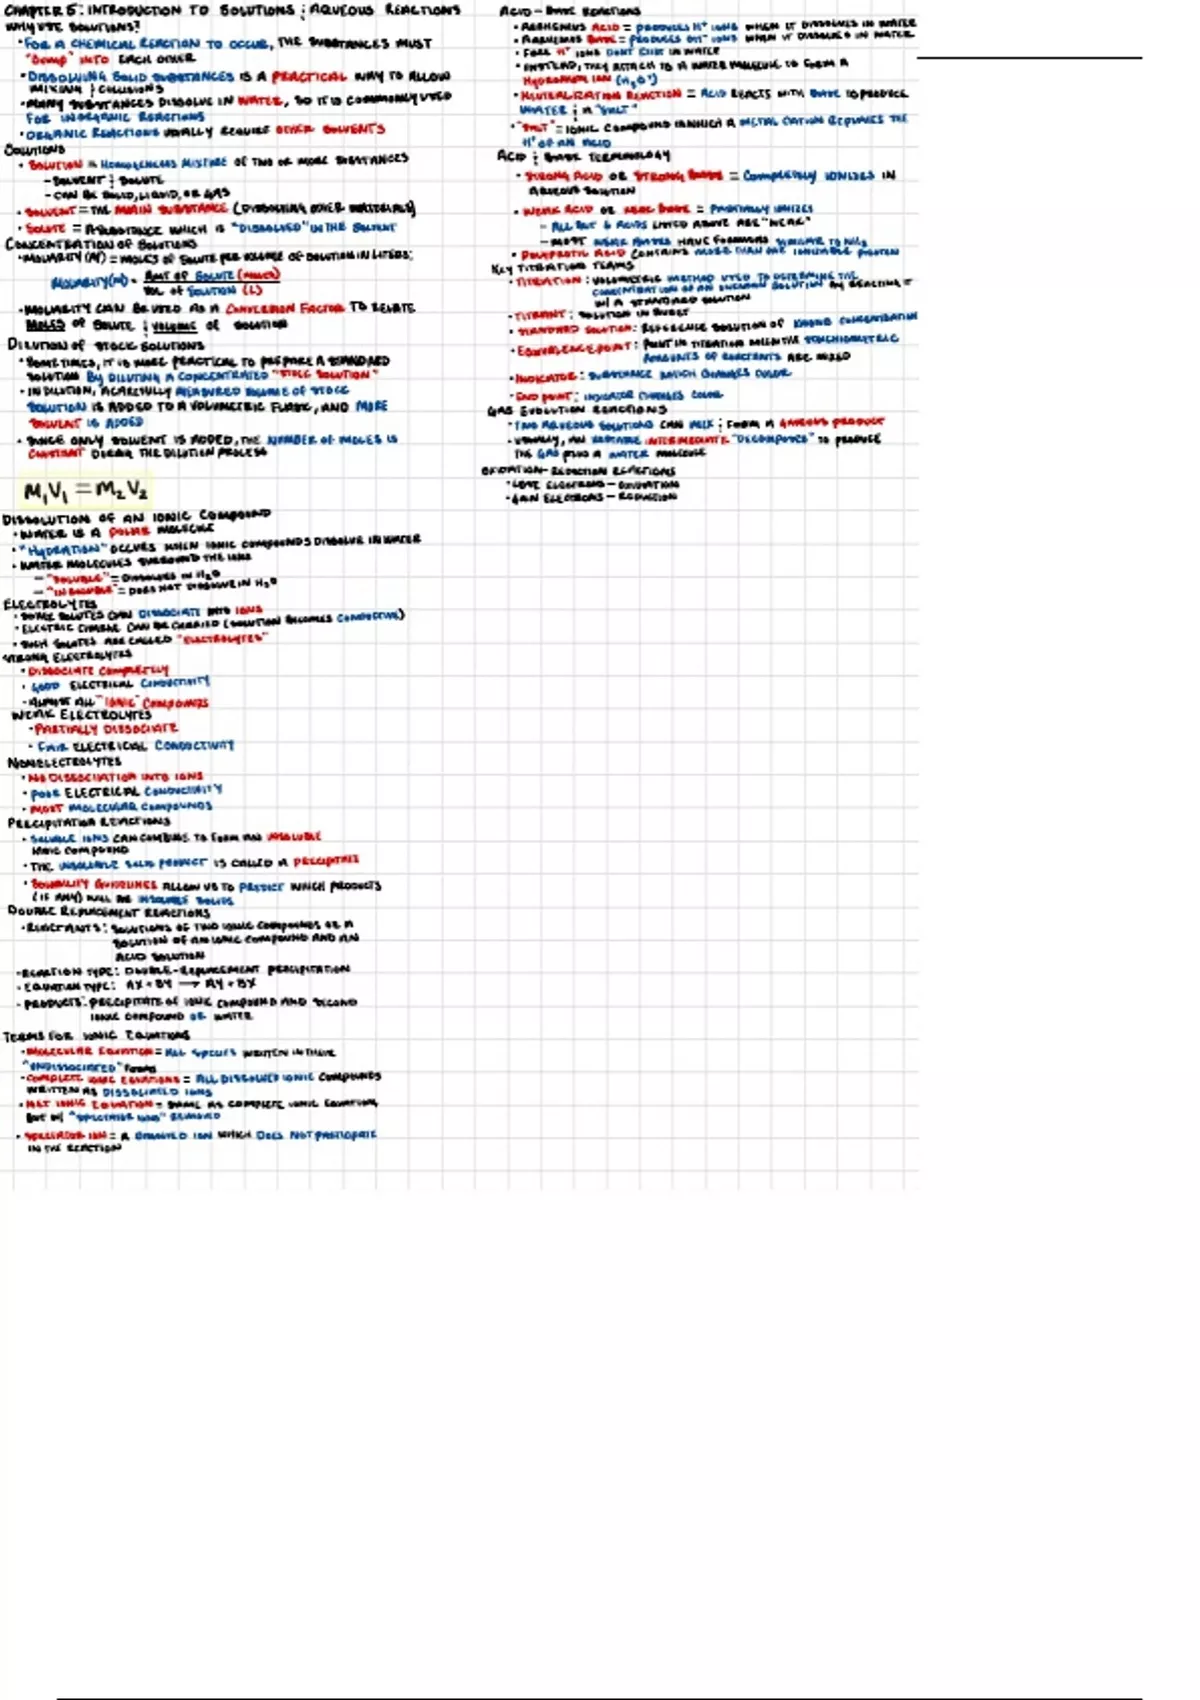 CHAPTER 5: INTRODUCTION TO SOLUTIONS & AQUEOUS REACTIONS
WHY USE SOLUTIONS?
• FOR A CHEMICAL REACTION TO OCCUR, THE SUBSTANCES MUST
"BUMP" INTO EACH OTHER
• DISSOLVING SOLID SUBSTANCES IS A PRACTICAL WAY TO ALLOW
MIXING & COLLISIONS
• MANY SUBSTANCES DISSOLVE IN WATER, SO IT IS COMMONLY USED
FOR INORGANIC REACTIONS
• ORGANIC REACTIONS USUALLY REQUIRE OTHER SOLVENTS
SOLUTIONS
• SOLUTION = HOMOGENEOUS MIXTURE OF TWO OR MORE SUBSTANCES
- SOLVENT & SOLUTE
- CAN BE SOLID, LIQUID, OR GAS
• SOLVENT = THE MAIN SUBSTANCE (DISSOLVING OTHER MATERIALS)
• SOLUTE = A SUBSTANCE WHICH IS "DISSOLVED" IN THE SOLVENT
CONCENTRATION OF SOLUTIONS
• MOLARITY (M) = MOLES OF SOLUTE PER VOLUME OF SOLUTION IN LITERS:
MOLARITY (M) = AMT OF SOLUTE (MOLES)
VOL OF SOLUTION (L)
• MOLARITY CAN BE USED AS A CONVERSION FACTOR TO RELATE
MOLES OF SOLUTE & VOLUME OF SOLUTION
DILUTION OF STOCK SOLUTIONS
• SOMETIMES, IT IS MORE PRACTICAL TO PREPARE A STANDARD
SOLUTION BY DILUTING A CONCENTRATED "STOCK SOLUTION"
• IN DILUTION, A CAREFULLY MEASURED VOLUME OF STOCK
SOLUTION IS ADDED TO A VOLUMETRIC FLASK, AND MORE
SOLVENT IS ADDED
• SINCE ONLY SOLVENT IS ADDED, THE NUMBER OF MOLES IS
CONSTANT DURING THE DILUTION PROCESS
M₁V₁ = M₂V₂
DISSOLUTION OF AN IONIC COMPOUND
• WATER IS A POLAR MOLECULE
• "HYDRATION" OCCURS WHEN IONIC COMPOUNDS DISSOLVE IN WATER
• WATER MOLECULES SURROUND THE IONS
- "SOLUBLE" = DISSOLVES IN H₂O
- "INSOLUBLE" = DOES NOT DISSOLVE IN H₂O
ELECTROLYTES
• SOME SOLUTES CAN DISSOCIATE INTO IONS
• ELECTRIC CHARGE CAN BE CARRIED (SOLUTION BECOMES CONDUCTIVE)
• SUCH SOLUTES ARE CALLED "ELECTROLYTES"
STRONG ELECTROLYTES
• DISSOCIATE COMPLETELY
• GOOD ELECTRICAL CONDUCTIVITY
• ALMOST ALL "IONIC" COMPOUNDS
WEAK ELECTROLYTES
• PARTIALLY DISSOCIATE
• FAIR ELECTRICAL CONDUCTIVITY
NONELECTROLYTES
• NO DISSOCIATION INTO IONS
• POOR ELECTRICAL CONDUCTIVITY
• MOST MOLECULAR COMPOUNDS
PRECIPITATION REACTIONS
• SOLUBLE IONS CAN COMBINE TO FORM AN INSOLUBLE
IONIC COMPOUND
• THE INSOLUBLE SOLID PRODUCT IS CALLED A PRECIPITATE
• SOLUBILITY GUIDELINES ALLOW US TO PREDICT WHICH PRODUCTS
(IF ANY) WILL BE INSOLUBLE SOLIDS
DOUBLE REPLACEMENT REACTIONS
• REACTANTS: SOLUTIONS OF TWO IONIC COMPOUNDS OR A
SOLUTION OF AN IONIC COMPOUND AND AN
ACID SOLUTION
• REACTION TYPE: DOUBLE-REPLACEMENT PRECIPITATION
• EQUATION TYPE: AX + BY → AY + BX
• PRODUCTS: PRECIPITATE OF IONIC COMPOUND AND SECOND
IONIC COMPOUND OR WATER
TERMS FOR IONIC EQUATIONS
• MOLECULAR EQUATION = ALL SPECIES WRITTEN IN THEIR
"UNDISSOCIATED" FORMS
• COMPLETE IONIC EQUATIONS = ALL DISSOLVED IONIC COMPOUNDS
WRITTEN AS DISSOCIATED IONS
• NET IONIC EQUATION = SAME AS COMPLETE IONIC EQUATION,
BUT W/ "SPECTATOR IONS" REMOVED
• SPECTATOR ION = A DISSOLVED ION WHICH DOES NOT PARTICIPATE
IN THE REACTION
ACID-BASE REACTIONS
• ARRHENIUS ACID = PRODUCES H⁺ IONS WHEN IT DISSOLVES IN WATER
• ARRHENIUS BASE = PRODUCES OH⁻ IONS WHEN IT DISSOLVES IN WATER
• FREE H⁺ IONS DONT EXIST IN WATER
• INSTEAD, THEY ATTACH TO A WATER MOLECULE TO FORM A
HYDRONIUM ION (H₃O⁺)
• NEUTRALIZATION REACTION = ACID REACTS WITH BASE TO PRODUCE
WATER & A "SALT"
• "SALT" = IONIC COMPOUND IN WHICH A METAL CATION REPLACES THE
H⁺ OF AN ACID
ACID & BASE TERMINOLOGY
• STRONG ACID OR STRONG BASE = COMPLETELY IONIZES IN
AQUEOUS SOLUTION
• WEAK ACID OR WEAK BASE = PARTIALLY IONIZES
- ALL BUT 6 ACIDS LISTED ABOVE ARE "WEAK"
- MOST WEAK BASES HAVE FORMULAS SIMILAR TO NH₃
• POLYPROTIC ACID CONTAINS MORE THAN ONE IONIZABLE PROTON
KEY TITRATION TERMS
• TITRATION: VOLUMETRIC METHOD USED TO DETERMINE THE
CONCENTRATION OF AN UNKNOWN SOLUTION BY REACTING IT
W/ A STANDARD SOLUTION
• TITRANT: SOLUTION IN BURET
• STANDARD SOLUTION: REFERENCE SOLUTION OF KNOWN CONCENTRATION
• EQUIVALENCE POINT: POINT IN TITRATION WHEN THE STOICHIOMETRIC
AMOUNTS OF REACTANTS ARE MIXED
• INDICATOR: SUBSTANCE WHICH CHANGES COLOR
• END POINT: INDICATOR CHANGES COLOR
GAS EVOLUTION REACTIONS
• TWO AQUEOUS SOLUTIONS CAN MIX & FORM A GASEOUS PRODUCT
• USUALLY, AN UNSTABLE INTERMEDIATE "DECOMPOSES" TO PRODUCE
THE GAS PLUS A WATER MOLECULE
OXIDATION-REDUCTION REACTIONS
• LOSE ELECTRONS - OXIDATION
• GAIN ELECTRONS - REDUCTION